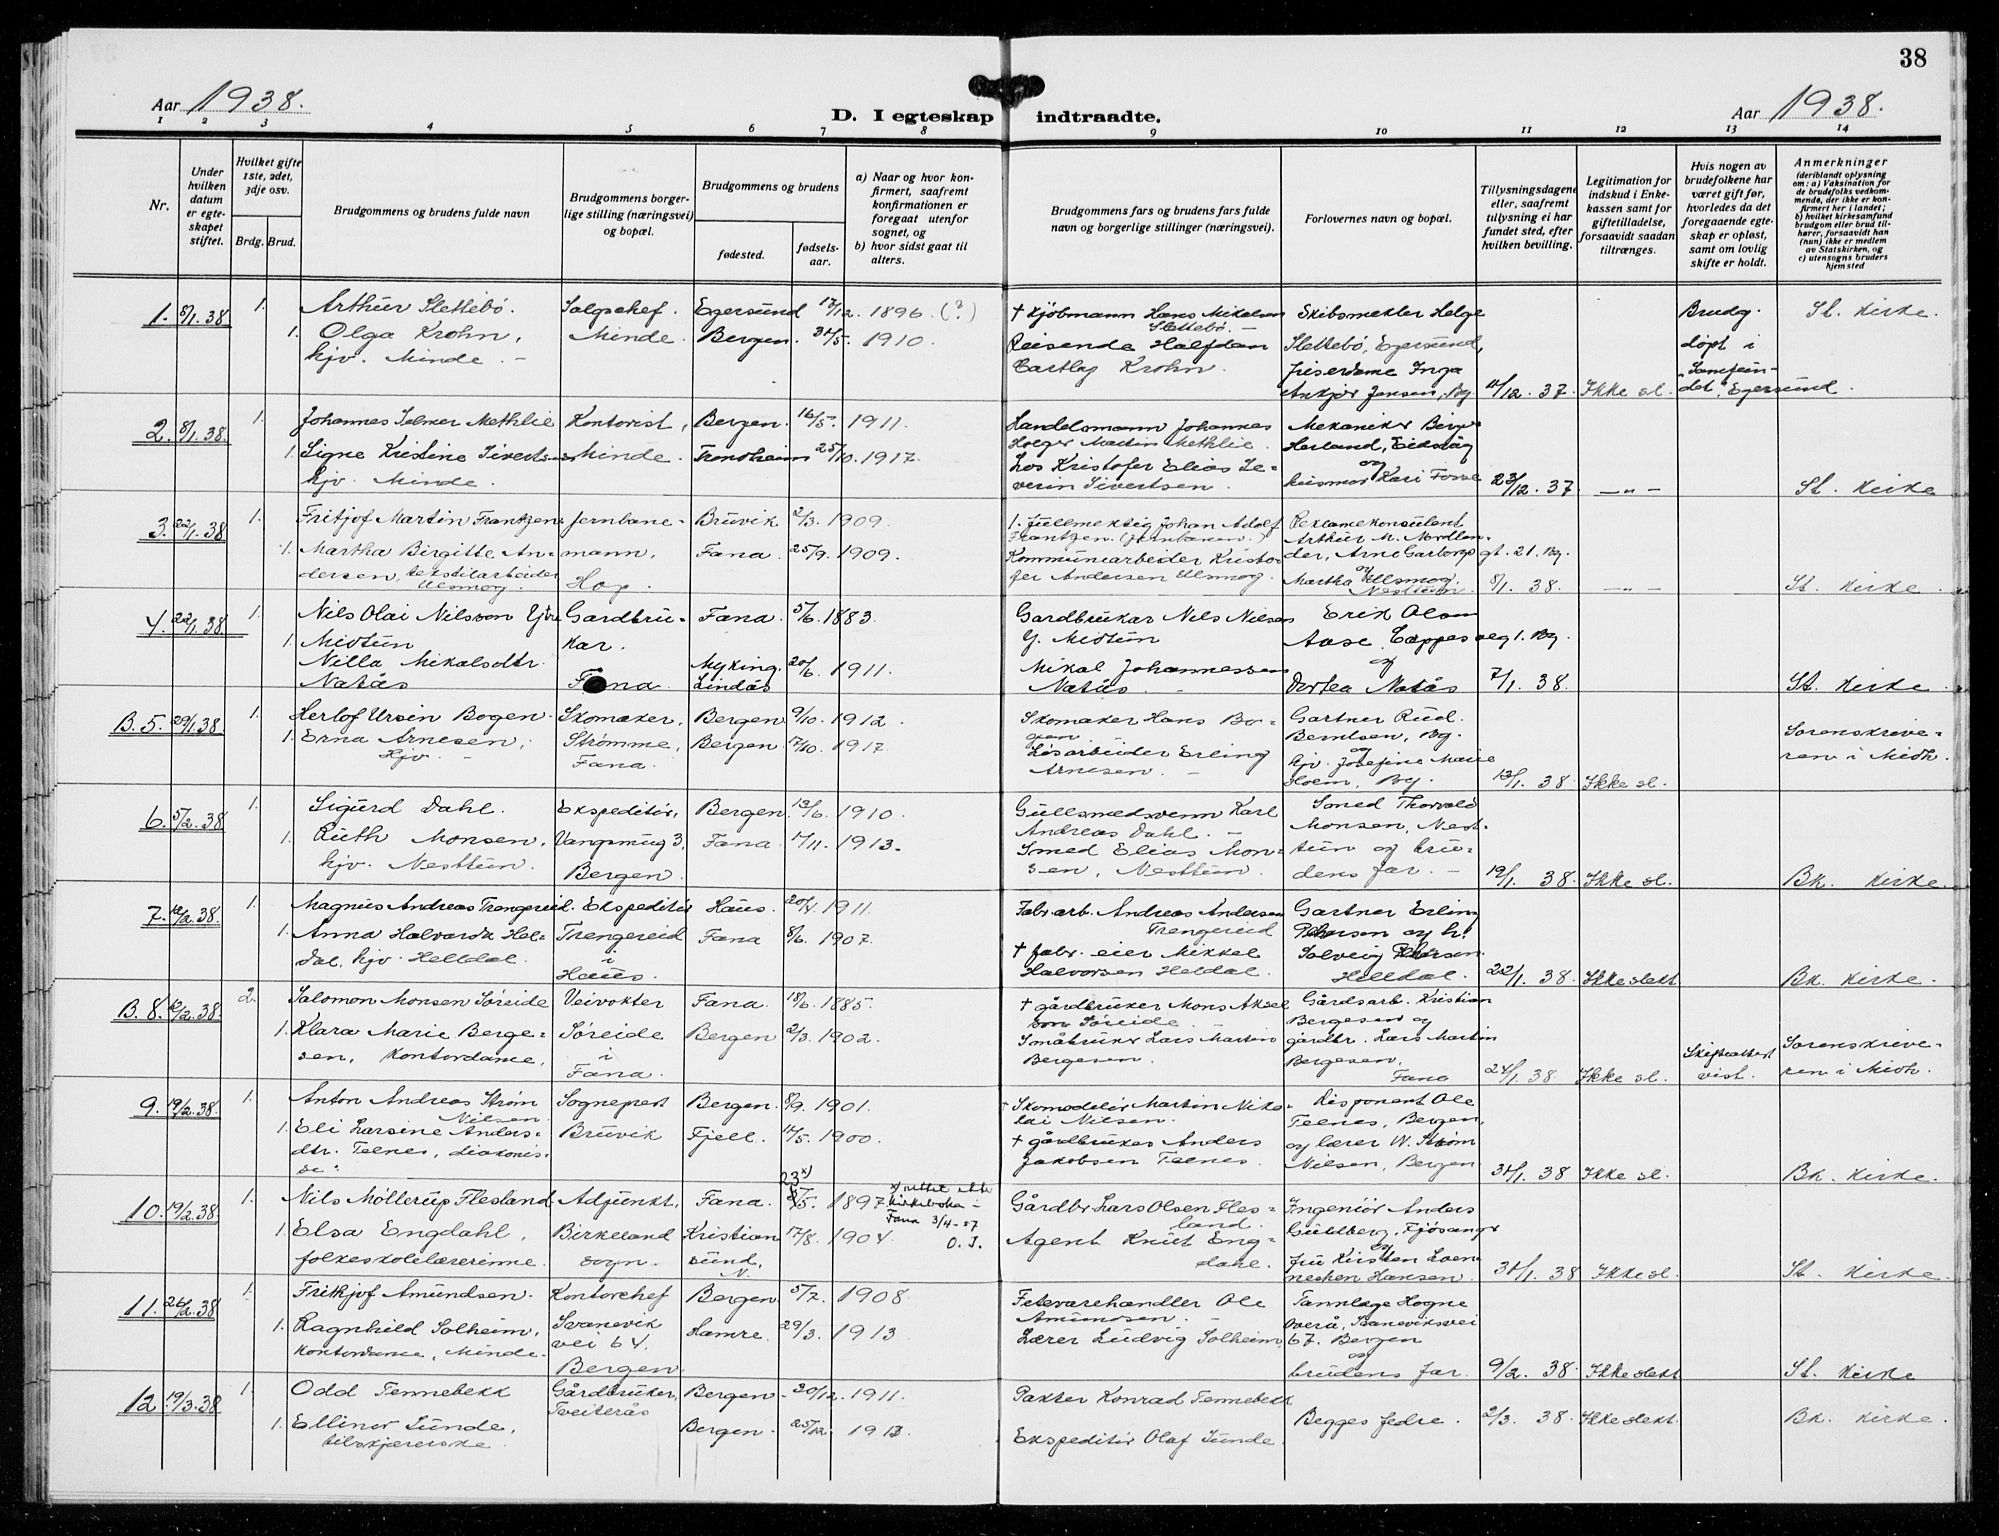 38
Aar 1938.
D. I egteskap indtraadte.
Aar 1938.
1 2 3 4 5 6 7 8 9 10 11 12 13 14
Nr.
Under hvilken datum er egteskapet stiftet.
Hvilket gifte 1ste, 2det, 3dje osv.
Brdg. Brud.
Brudgommens og brudens fulde navn
Brudgommens borgerlige stilling (næringsvei) og bopæl.
Brudgommens og brudens
fødested.
fødselsaar.
a) Naar og hvor konfirmert, saafremt konfirmationen er foregaat utenfor sognet, og
b) hvor sidst gaat til alters.
Brudgommens fars og brudens fars fulde navn og borgerlige stillinger (næringsvei).
Forlovernes navn og bopæl.
Tillysningsdagene eller, saafremt tillysning ei har fundet sted, efter hvilken bevilling.
Legitimation for indskud i Enkekassen samt for giftetilladelse, forsaavidt saadan tiltrænges.
Hvis nogen av brudefolkene har været gift før, hvorledes da det foregaaende egteskap er opløst, samt om lovlig skifte er holdt.
Anmerkninger
(deriblandt oplysning om: a) Vaksination for de brudefolks vedkommende, der ikke er konfirmert her i landet;
b) hvilket kirkesamfund brudgom eller brud tilhører, forsaavidt han (hun) ikke er medlem av Statskirken, og
c) utensogns bruders hjemsted
1. 8/1.38 1. Arthur Slettebø. Salgschef. Egersund 17/12. 1896 (?) † Kjøbmann Hans Mikelsen Slettebø. Skibsmekler Helge Brudg. St. Kirke.
1. Olga Krohn, Minde. Bergen 31/5. 1910. Reisende Halfdan Slettebø, Egersund, døpt i
hjv. Minde. Krohn. friserdame Inga Jensen, Bg 11/12. 37. Ikke sl. Egersund.
2. 8/1.38. 1. Johannes Methlie Kontorist, Bergen 16/5. 1911. Handelsmann Johannes Mekaniker Birger
1. Signe Kristine Sivertsen Minde. Trondheim 25/10. 1917. Holger Martin Methlie. Herland, Eidsvåg
hjv. Minde. Los Kristofer Elias Severin Sivertsen. og husmor Kari Fosse 23/12. 37. — „ — St. Kirke
3. 22/1.38 1. Fritjof Martin Frantzen Jernbanemann, Bruvik 2/3. 1909. Fullmektig Johan Adolf Frantzen. Reklamekonsulent
1. Martha Birgitte Andersen, tekstilarbeider Ulsmog. Hop. Fana. 25/9. 1909. Kommunearbeider Kristofer Andersen Ulsmog. Arthur M. Nordlander, Arne Garborg gt. 21. Bg.
og Martha Ulsmog. Nesttun. 8/1. 38. — „ — St. Kirke.
4. 22/1.38 1. Nils Olai Nilsson Gardbrukar. Fana. 5/6. 1883. Gardbrukar Nils Nilsen Erik Olsen
1. Midtun Y. Midtun Aase,
Nilla Mikalsdtr. Natås Fana. Myking Lindås 20/6. 1911. Mikal Johannessen Natås. og Dortea Natås 7/1. 38. St. Kirke
B. 5. 29/1.38 1. Herlof Ursin Bogen Skomaker, Bergen 9/10. 1912. Skomaker Hans Bogen Gartner Rud. Berntsen, Bg. Sorenskriveren i Midh.
1. Erna Arnesen, Hjv. Strømme, Fana. Bergen 17/10. 1917. Løsarbeider Erling Arnesen. og hjv. Josefine Marie Hoem, Bg. 13/1. 38 Ikke sl.
6. 5/2.38 1. Sigurd Dahl. Ekspeditør, Bergen 13/6. 1910. Gullsmedsvenn Karl Andreas Dahl. Smed Thorvald Monsen, Nesttun og brudens far.
1. Ruth Monsen, hjv. Nesttun. 3, Bergen. Fana. 17/11. 1913. Smed Elias Monsen, Nesttun. 19/1. 38. Ikke sl. Bk. Kirke.
7. 12/2.38. 1. Magnus Andreas Trengereid. Ekspeditør Haus. 20/4. 1911. Fabr.arb. Andreas Andersen Trengereid Gartner Erling
1. Anna Halvarda Heldal, hjv. Helldal. Trengereid i Haus. Fana 8/6. 1907. † fabr. eier Mikkel Halvorsen Heldal. Solveig Helldal. 22/1. 38. Ikke slekt Bk. Kirke.
B. 8. 12/2.38. 2. Salomon Monsen Søreide Veivokter Fana. 18/6. 1885. † gårdbruker Mons Søreide. Gårdsarb. Kristian Bergesen og
1. Klara Marie Bergesen, kontordame, Søreide i Fana. Bergen 2/3. 1902. Småbruker Lars Martin Bergesen. gårdbr. Lars Martin Bergesen. Fana 24/1. 38. Ikke sl. Skifteattest vist. Sorenskriveren i Midh.
9. 19/2.38. 1. Anton Andreas Strøm Nilsen. Sogneprest Bergen. 8/9. 1901. † Martin Nikolai Nilsen. Disponent Ole Teenes, Bergen,
1. Eli Larsine Andersdtr. Teenes, diakonisse. Bruvik Fjell. 11/5. 1900. † gårdbruker Anders Jakobsen Teenes. og lærer W. Strøm Nilsen, Bergen 31/1. 38 Ikke sl. Bk. Kirke.
10. 19/2.38. 1. Nils Møllerup Flesland Adjunkt, Fana. 23x) /5. 1897 x) rettet etter kirkeboka Fana 3/4-57 O. J. Gårdbr. Lars Olsen Flesland. Ingeniør Anders Guldberg, Fjøsanger
1. Elsa Engdahl, folkeskolelærerinne. Birkeland sogn. Kristiansund. N. 17/8. 1904. Agent Knut Engdahl. og fru Kirsten Hansen. 31/1. 38 Ikke sl. St. Kirke
11. 26/2.38 1. Fritkjof Amundsen. Kontorchef Bergen. 5/7. 1908. Fetevarehandler Ole Amundsen. Tannlæge Hogne Overå, Svaneviksvei 67. Bergen
1. Ragnhild Solheim, kontordame, Minde. Svanevik vei 64. Bergen. Hamre. 29/3. 1913. Lærer Ludvig Solheim, og brudens far. 9/2. 38 Ikke slekt St. Kirke
12. 19/3.38 1. Odd Tennebekk Gårdbruker, Tveiterås Bergen. 30/12. 1911. Pakter Konrad Tennebekk Begges fedre. 2/3. 38. Ikke slekt. Bk. Kirke.
1. Ellinor Sunde, tilskjærerske. Bergen. 25/12. 1913. Ekspeditør Olaf Sunde.